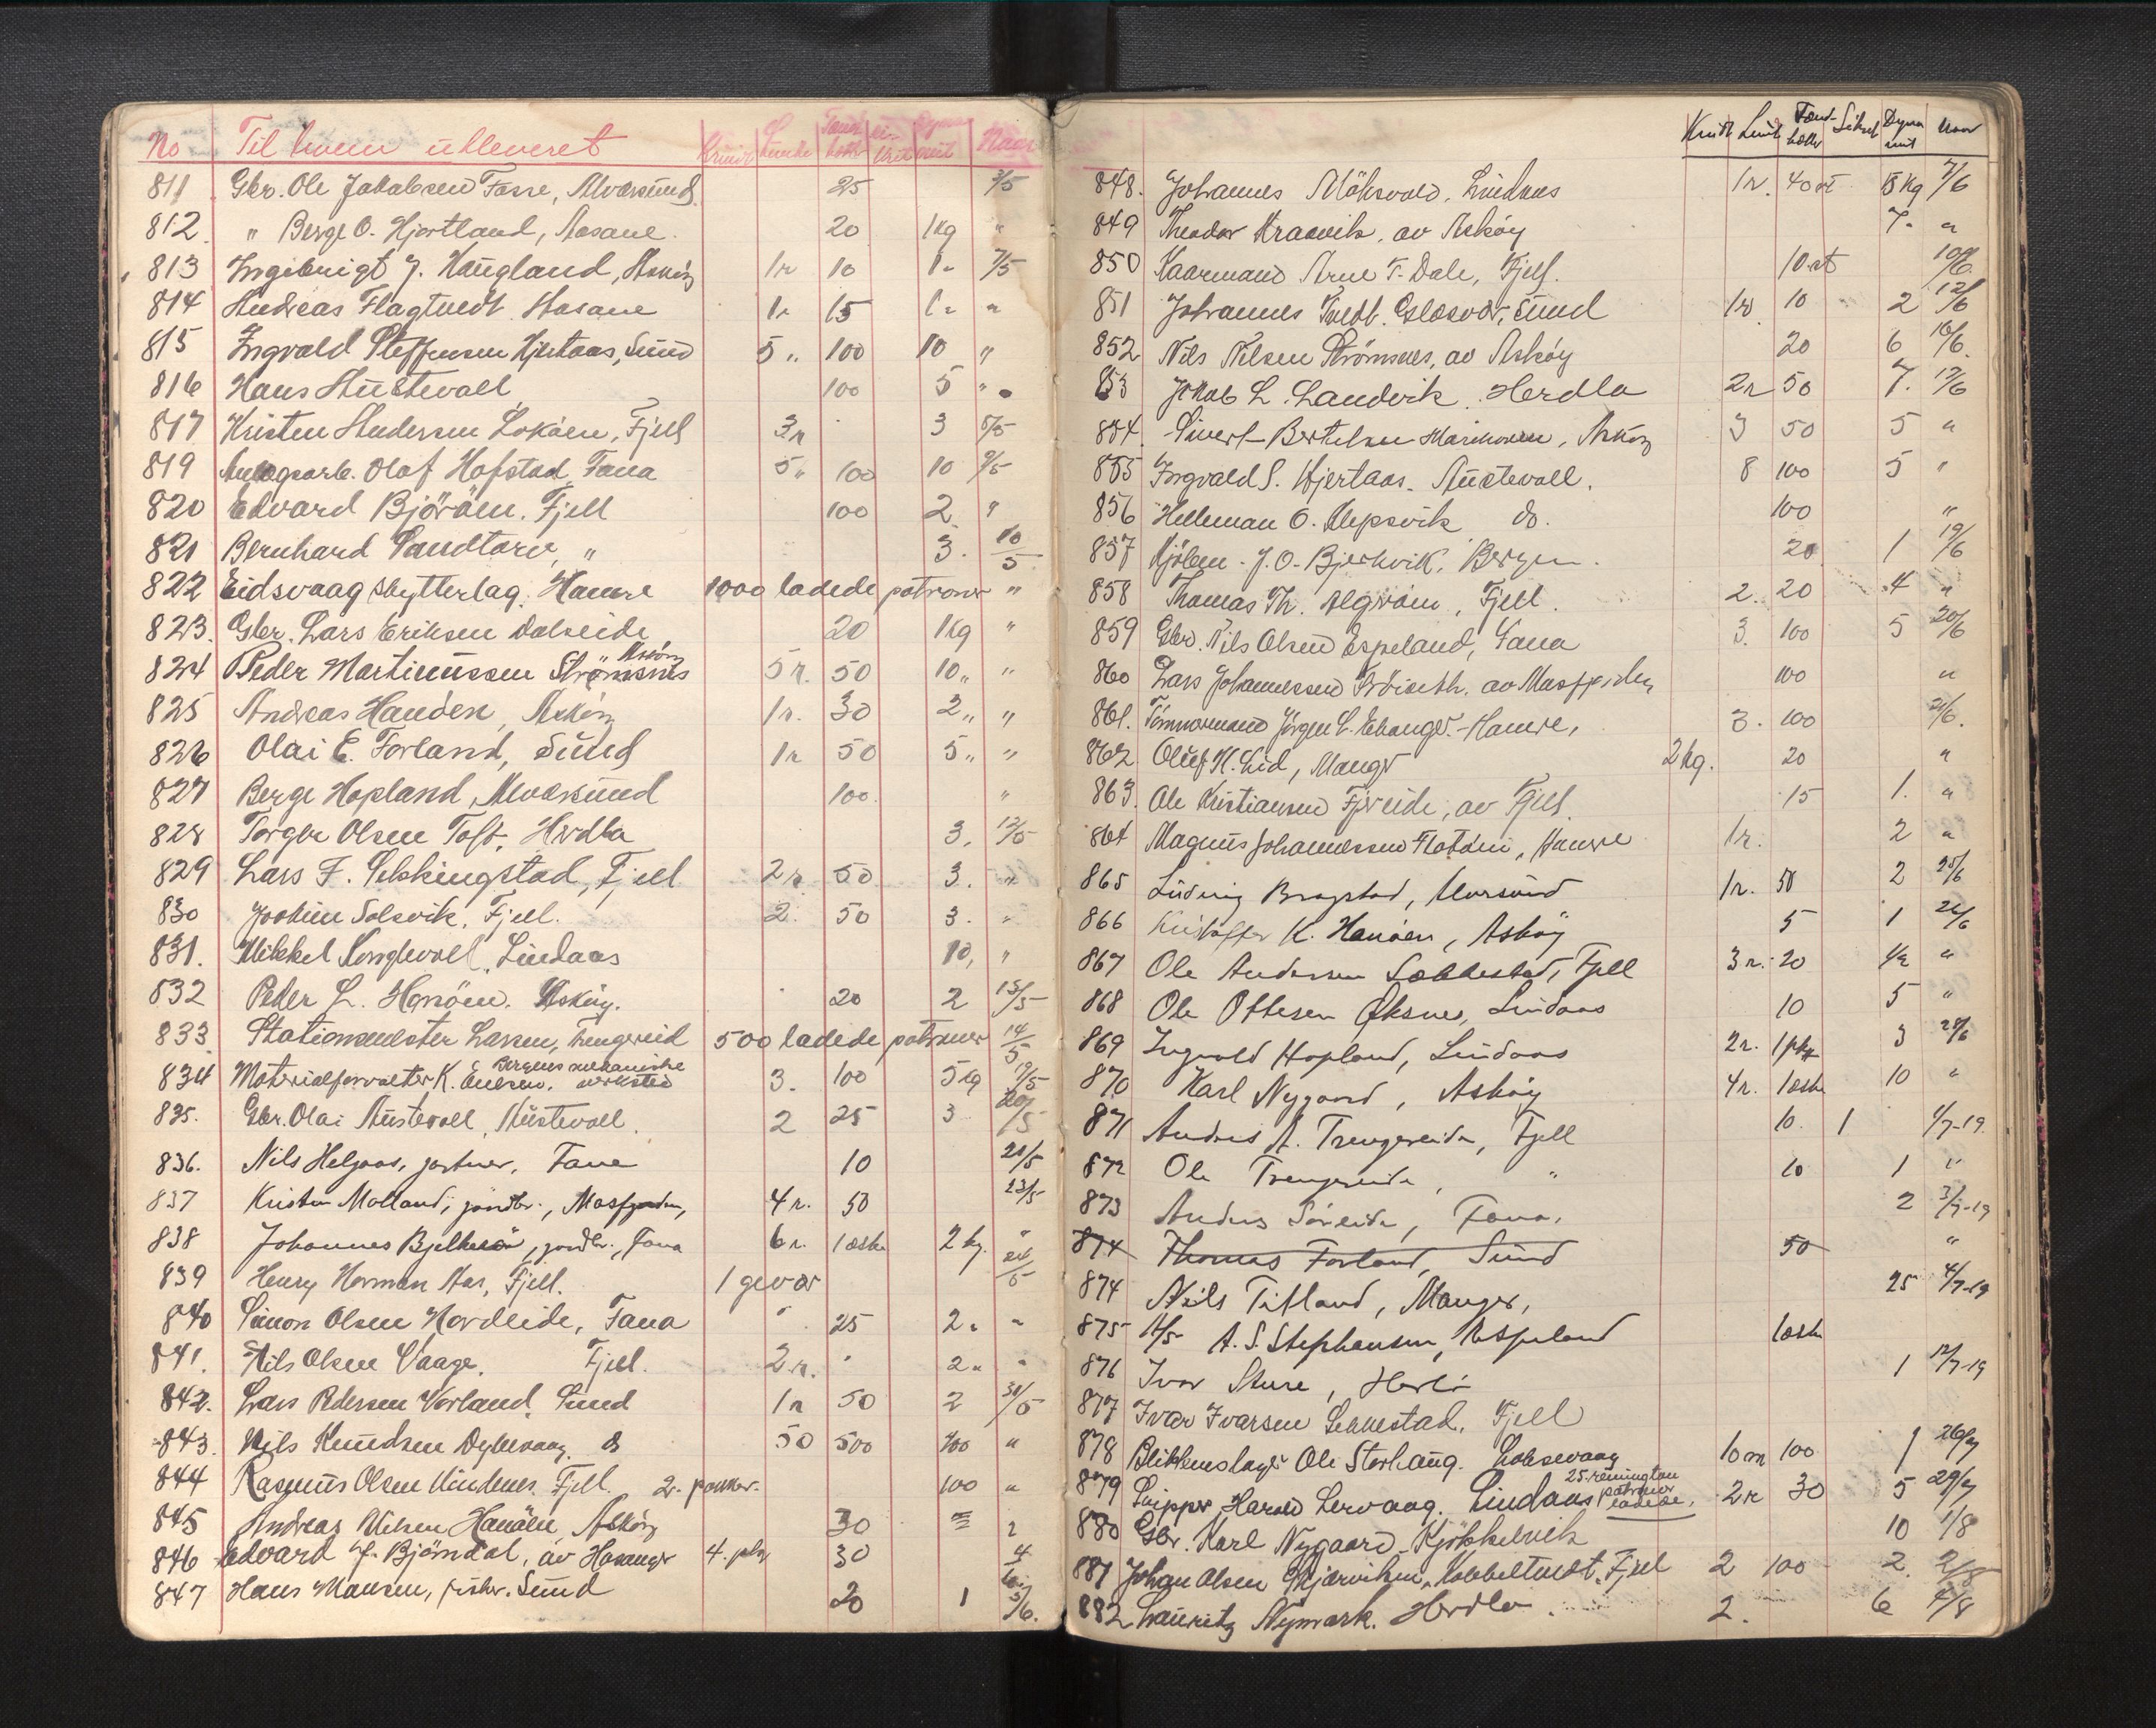 No Til hvem utleveret Krudt Lunte Naar
811 Gbr. Ole Jakobsen Fosse, Alversund 25 3/5
812. " Berge O. Hjortland, Aasane. 20 1 kg "
813 Ingebrigt J. Haugland, Askøy 1 r 10 1 " 7/5
814 Andreas Flagtvedt Aasane 1 " 15 1 " "
815 Ingvald Steffensen Hjertaas, Sund 5 " 100 10 "
816 Hans Austevoll 100 5 "
817 Kristen Andersen Lokøen, Fjell 3 r 3 8/5
819 Olaf Hofstad Fana 5 " 100 10 9/5
820 Edvard Bjørøen. Fjell 100 2 "
821 Bernhard Sandtorv, " 3. 10/5
822 Eidsvaag skytterlag. Hamre 1000 ladede patroner "
823. Gbr. Lars Eriksen Dalseide 20 1 Kg "
824 Peder Martinussen Strømsnes " Askøy 5 r. 50 10 " "
825 Andreas Hanøen, Askøy 1 r. 30 2 " "
826 Olai E. Forland, Sund 1 r 50 5 " "
827 Berge Hopland, Alversund 100. "
828 Torger Olsen Toft, Herdla 3. 12/5
829 Lars F. Sekkingstad, Fjell 2 r. 50 3. "
830 Joakim Solsvik, Fjell. 2. 50 3. "
831. Mikkel Kongevoll, Lindaas 10, "
832 Peder L. Hanøen. Askøy. 20 2 13/5
833 Stationsmester Larsen, Trengereid 500 ladede patroner 14/5
834 Materialforvalter K. Bergens mekaniske verksted 3. 100 5 kg 19/5
835. Gbr. Olai Austevoll, Austevoll. 2 25 3 20/5
836. Nils Helgaas, gartner, Fane 10 21/5
837 Kristen Molland, gaardbr., Masfjorden, 4 r. 50 23/5
838 Johannes Bjelkerøi, gaardbr., Fana 6 r. 1 æske 2 kg. "
839 Henry Herman Aas, Fjell. 1 gevær 24/5
840 Simon Olsen Hordleide, Fana 25 2 " "
841. Nils Olsen Vaage. Fjell. 2 r. 2 " "
842. Lars Pedersen Vorland, Sund 1 r 50 2 31/5
843. Nils Knudsen 50 500 100 "
844 Rasmus Olsen Vindenes. Fjell. 2. pakker. 100 "
845 Andreas Nilsen Hanøen, Askøy 30
846 Edvard J. Bjørndal, av Hosanger 4. pk 30 4/6
847 Hans Monsen, fisker. Sund 20 1 5/6.
Krudt Lunte Fæng-hætter Dynamit Naar
848. Johannes Lindaas 1 r. 40 st. 15 Kg 7/6
849 Theodor Kraavik, av Askøy 7. "
850 Kaarmand Arne T. Dale, Fjell. 10 st 10/6
851 Johannes Tvedt. Glesvær, Sund 1 r 10 2 12/6
852 Nils Nilsen Strømsnes, av Askøy 20 6 16/6.
853 Jakob L. Landvik. Herdla 2 r 50 7. 17/6
854. Sivert Bertelsen Askøy 3 50 5 "
855 Ingvald S. Hjertaas. Austevoll. 8 100 5 "
856 Helleman O. Klepsvik do. 100 "
857 Kjøbm. J. O. Bjerkvik, Bergen. 20 1 19/6
858 Thomas Th. Algrøen, Fjell. 2. 20 4 "
859 Gbr. Nils Olsen Espeland, Fana 3. 100 5 20/6
860 Lars Johannessen av Masfjorden 100 "
861. Tømmermand Jørgen L. Hamre, 3. 100 21/6.
862 Oluf K. Lid, Manger 2 kg. 20 "
863. Ole Kristiansen Fjæreide, av Fjell. 15 1. "
864 Magnus Johannessen Flatøen, Hamre 1 r. 2 "
865 Ludvig Bragstad, Alversund 1 r. 50 2 25/6
866 Kristoffer K. Hanøen, Askøy 5 1 26/6
867 Ole Andersen Sekkestad, Fjell 3 r. 20 1/2 "
868 Ole Ottesen Øksnes, Lindaas 10 5 "
869 Ingvald Hopland, Lindaas 2 r. 1 pk 3 28/6
870 Karl Nygaard, Askøy 4 r. 1 æske 10 "
871 Anders A. Trengereide, Fjell 10. 1 1/7-19.
872 Ole Trengereide, " 10 1 "
873 Anders Søreide, Fana. 2 3/7-19
874 Thomas Forland, Sund 50 "
874 Nils Titland, Manger, 25 4/7-19
875 A/S A. S. Stephansen, Espeland 1 æske
876 Ivar Sture, Herdla 1 12/7-19
877 Ivar Ivarsen Sekkestad. Fjell
878 Blikkenslager Ole Storhaug. Laksevaag 10 m 100 1 26/7
879 Skipper Harald Lervaag. Lindaas 25 remington patroner ladede. 2 r 30 5 29/7
880 Gbr. Karl Nygaard Kjøkkelvik 10 1/8
881 Johan Olsen Skjærviken, Kobbeltvedt. Fjell 2 100 2. 2/8
882 Lauritz Nymark. Herdla 2. 6 4/8